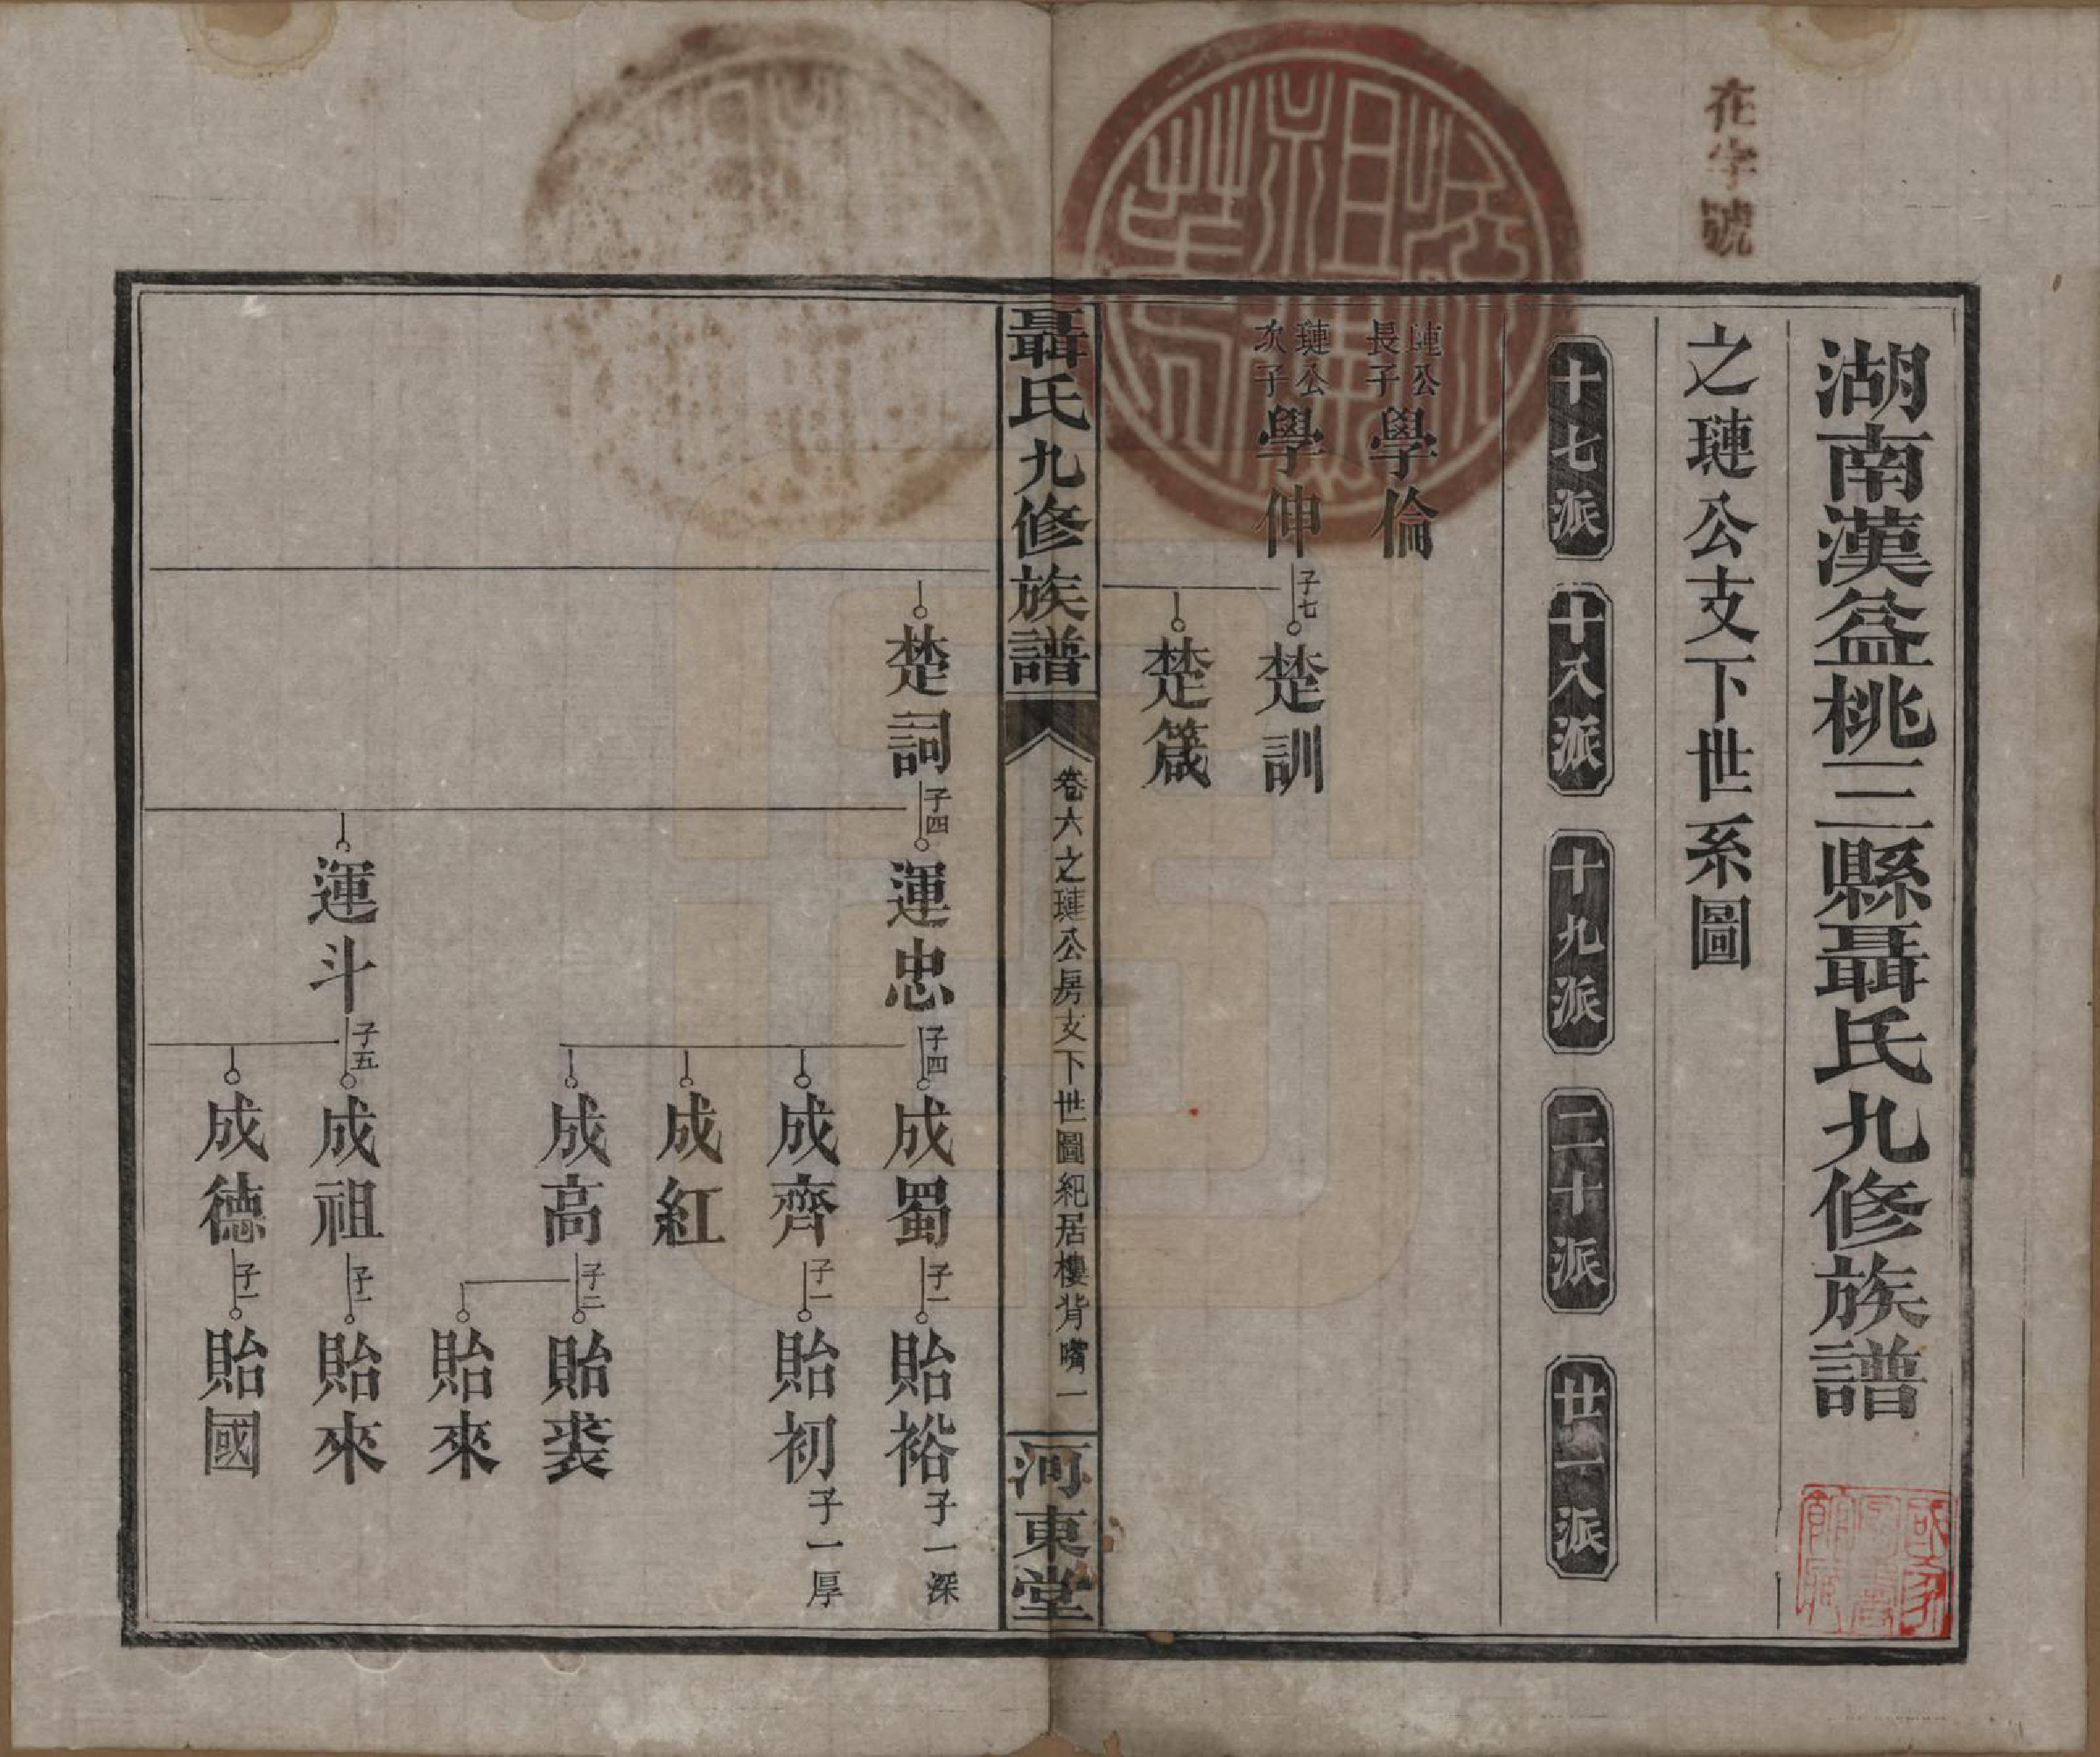 在字號
湖南漢益桃三縣聶氏九修族譜
之璉公支下世系圖
十七派
十八派
十九派
二十派
廿一派
璉公
長子
學倫
璉公
次子
學伸
子七
楚訓
楚箴
聶氏九修族譜
卷六之璉公房支下世圖紀居樓背嘴一
河東堂
楚詞
子四
運忠
子四
成蜀
子一
貽裕
子一深
成齊
子一
貽初
子一厚
成紅
成高
子二
貽裘
貽來
運斗
子五
成祖
子一
貽來
成德
子一
貽國